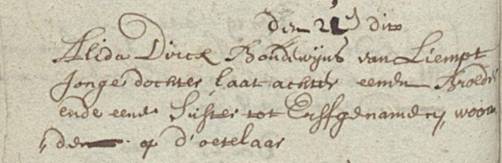 den 21 dito
Alida Dirck Boudewijns van Liempt
Jonge dochter laat achter eenen Broeder
ende eene Suster tot Erffgenamen, woon
de op d'oetelaar